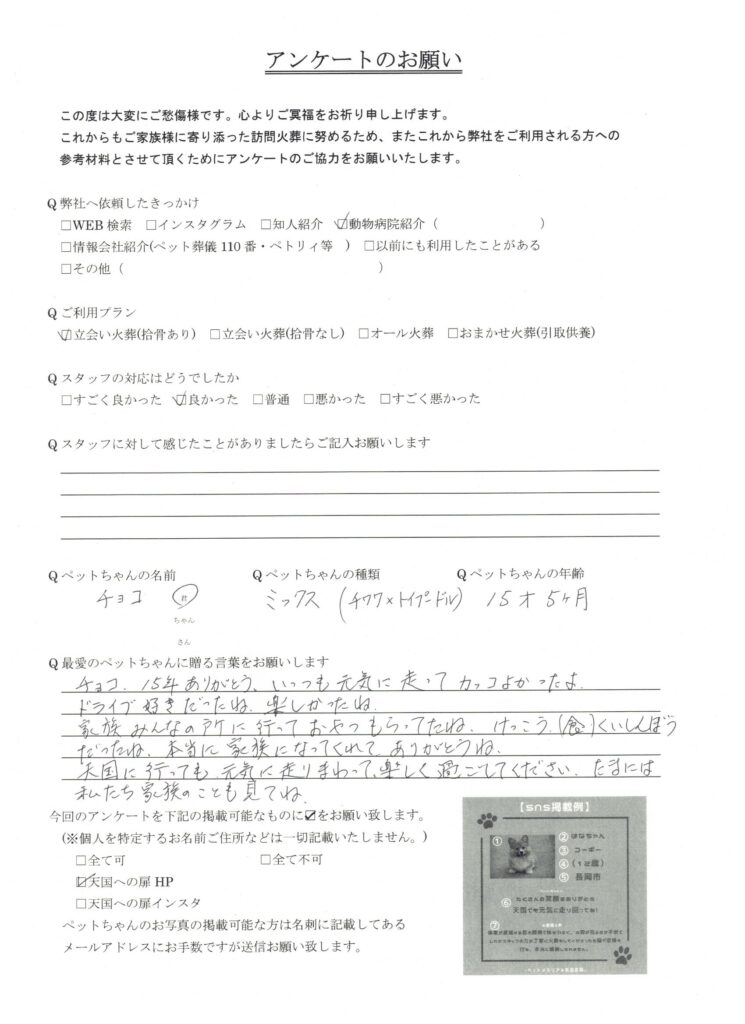 アンケートのお願い
この度は大変にご愁傷様です。心よりご冥福をお祈り申し上げます。
これからもご家族様に寄り添った訪問火葬に努めるため、またこれから弊社をご利用される方への
参考材料とさせて頂くためにアンケートのご協力をお願いいたします。
Q 弊社へ依頼したきっかけ
□WEB 検索 □インスタグラム □知人紹介 ☑動物病院紹介（ ）
□情報会社紹介(ペット葬儀 110 番・ペトリィ等 ) □以前にも利用したことがある
□その他（ ）
Q ご利用プラン
☑立会い火葬(拾骨あり) □立会い火葬(拾骨なし) □オール火葬 □おまかせ火葬(引取供養)
Q スタッフの対応はどうでしたか
□すごく良かった ☑良かった □普通 □悪かった □すごく悪かった
Q スタッフに対して感じたことがありましたらご記入お願いします
Q ペットちゃんの名前 Q ペットちゃんの種類 Q ペットちゃんの年齢
チョコ 君 ミックス (チワワ×トイプードル) 15才5ヶ月
ちゃん
さん
Q 最愛のペットちゃんに贈る言葉をお願いします
チョコ、15年ありがとう、いっつも元気に走ってカッコよかったよ。
ドライブ好きだったね。楽しかったね。
家族みんなの所に行っておやつもらってたね。けっこう(食)くいしんぼう
だったね。本当に家族になってくれてありがとうね。
天国に行っても元気に走りまわって、楽しく過ごしてください。たまには
私たち家族のことも見てね。
今回のアンケートを下記の掲載可能なものに☑をお願い致します。
(※個人を特定するお名前ご住所などは一切記載いたしません。)
□全て可 □全て不可
☑天国への扉 HP
□天国への扉インスタ
ペットちゃんのお写真の掲載可能な方は名刺に記載してある
メールアドレスにお手数ですが送信お願い致します。
【sns掲載例】
① ② はなちゃん
③ コーギー
④ （12歳）
⑤ 長岡市
⑥ たくさんの笑顔をありがとう
天国でも元気に走り回ってね！
⑦